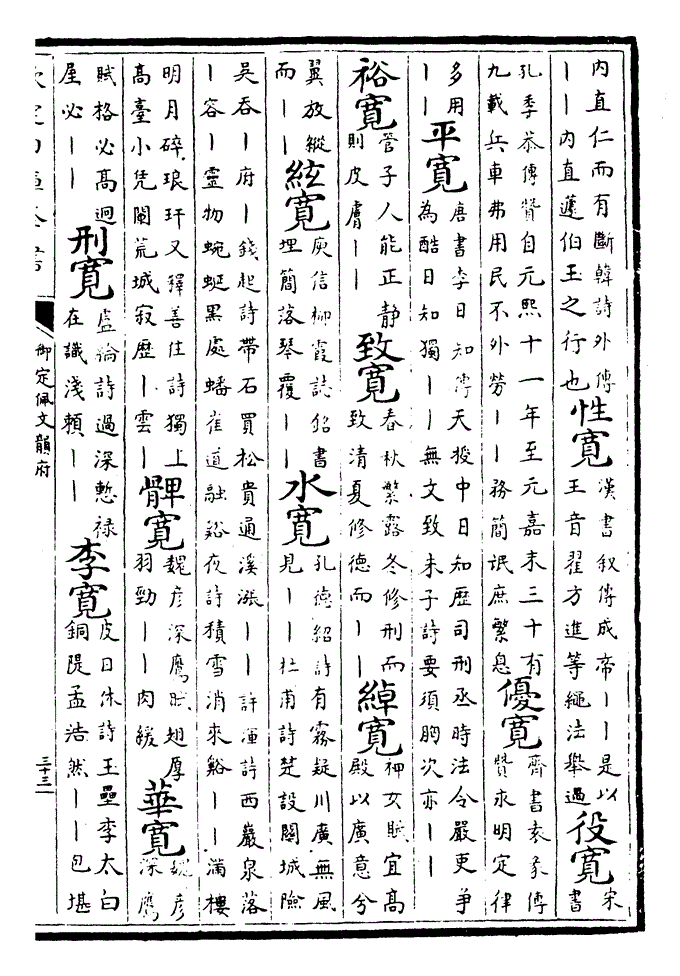 内直仁而有斷韓詩外傳丨丨内直蘧伯玉之行也性寛漢書叙傳成帝丨丨是以王音翟方進等繩法舉過役寛宋書
孔季恭傳贊自元熙十一年至元嘉末三十有九載兵車弗用民不外勞丨丨務簡氓庶繁息優寛齊書袁彖傳贊求明定律
多用丨丨平寛唐書李日知傳天授中日知歴司刑丞時法令嚴吏爭為酷日知獨丨丨無文致朱子詩要須胸次亦丨丨
裕寛管子人能正静則皮膚丨丨致寛春秋繁露冬修刑而致清夏修德而丨丨綽寛神女賦宜髙殿以廣意兮
翼放縱而丨丨絃寛庾信柳霞誌銘書埋簡落琴覆丨丨水寛孔德紹詩有霧疑川廣無風見丨丨杜甫詩楚設闗城險
吳吞丨府丨錢起詩帶石買松貴通溪漲丨丨許渾詩西巖泉落丨容丨靈物蜿蜒黒處蟠崔道融谿夜詩積雪消來谿丨滿樓
明月碎琅玕又釋善住詩獨上髙臺小凭闌荒城寂歴丨雲丨髀寛魏彦深鷹賦翅厚羽勁丨丨肉緩華寛魏彦深鷹
賦格必髙迥厔必丨丨刑寛盧綸詩過深慙禄在識淺頼丨丨李寛皮日休詩玉壘李太白銅隄孟浩然丨丨包堪
欽定四庫全書
御定佩文韻府
三十三